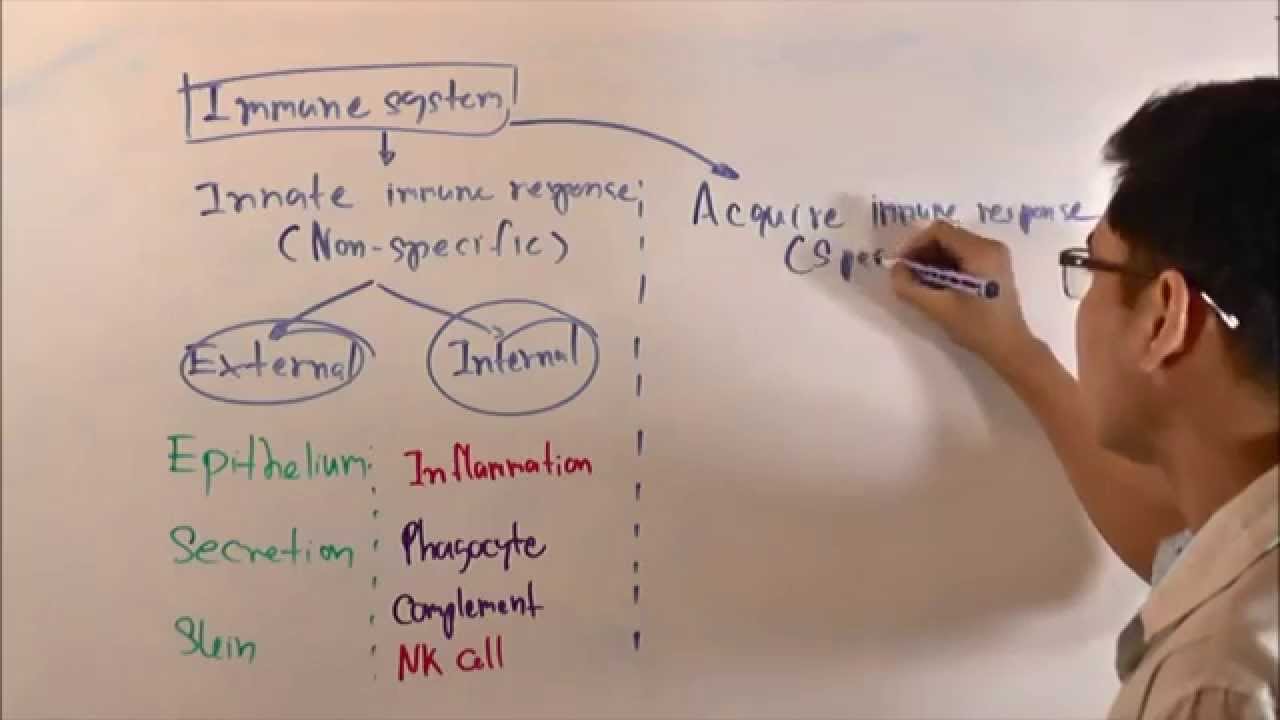 Immune system
Innate immune response
(Non-specific)
External
Internal
Epithelium
Secretion
Skin
Inflammation
Phagocyte
Complement
NK Cell
Acquire immune response
(Spec